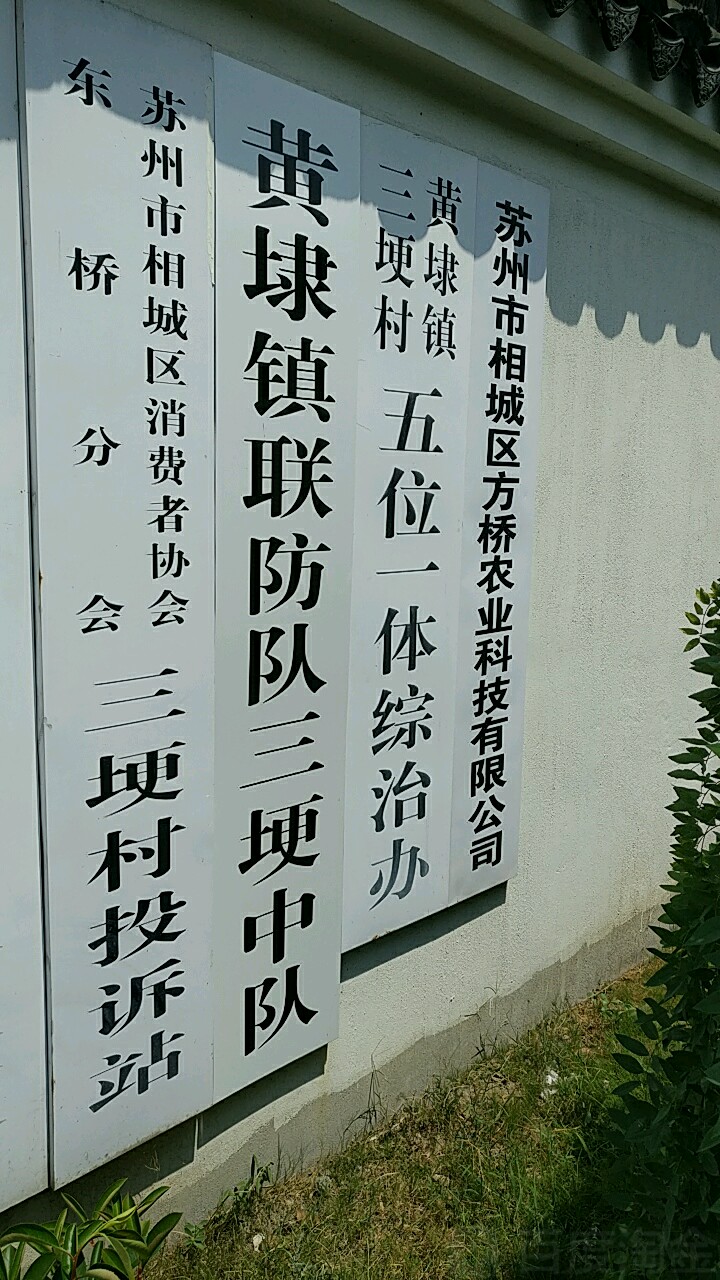 苏州市相城区方桥农业科技有限公司
黄埭镇
三埂村
五位一体综治办
黄埭镇联防队三埂中队
苏州市相城区消费者协会
东桥分会
三埂村投诉站